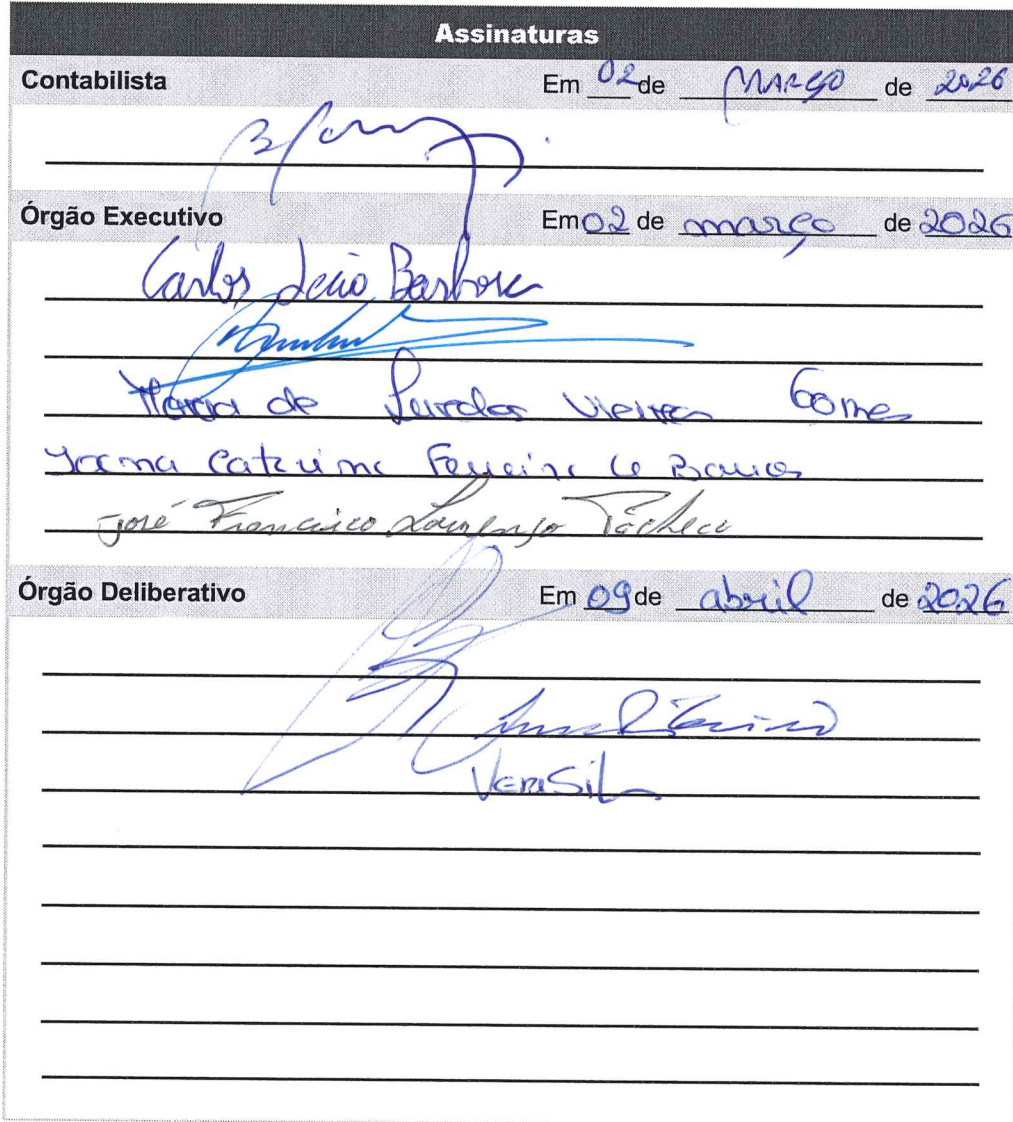 Assinaturas
Contabilista Em 02 de MARÇO de 2026
Órgão Executivo Em 02 de março de 2026
Carlos Lélio Barbosa
Maria de Lurdes Vieira Gomes
Catarina Ferreira de Barros
José Francisco Lourenço Pacheco
Órgão Deliberativo Em 09 de abril de 2026
Vera Silva